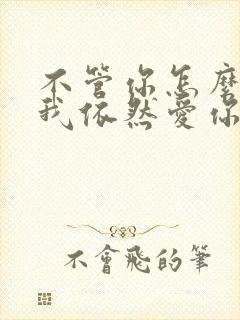 不管你怎麼
我依然愛你
不會飛的筆